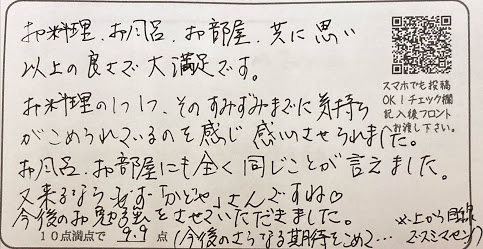 お料理、お風呂、お部屋、共に思い
以上の良さで大満足です。
お料理の1つ1つ、そのすみずみまでに気持ち
がこめられているのを感じ感心させられました。
お風呂、お部屋にも全く同じことが言えました。
又来るなら必ず「かどや」さんですね♡
今後のお勉強をさせていただきました。
10点満点で 9.9 点 (今後のさらなる期待をこめて…
※上から目線
でスミマセン)
スマホでも投稿
OK!チェック欄
記入後フロント
へお渡し下さい。